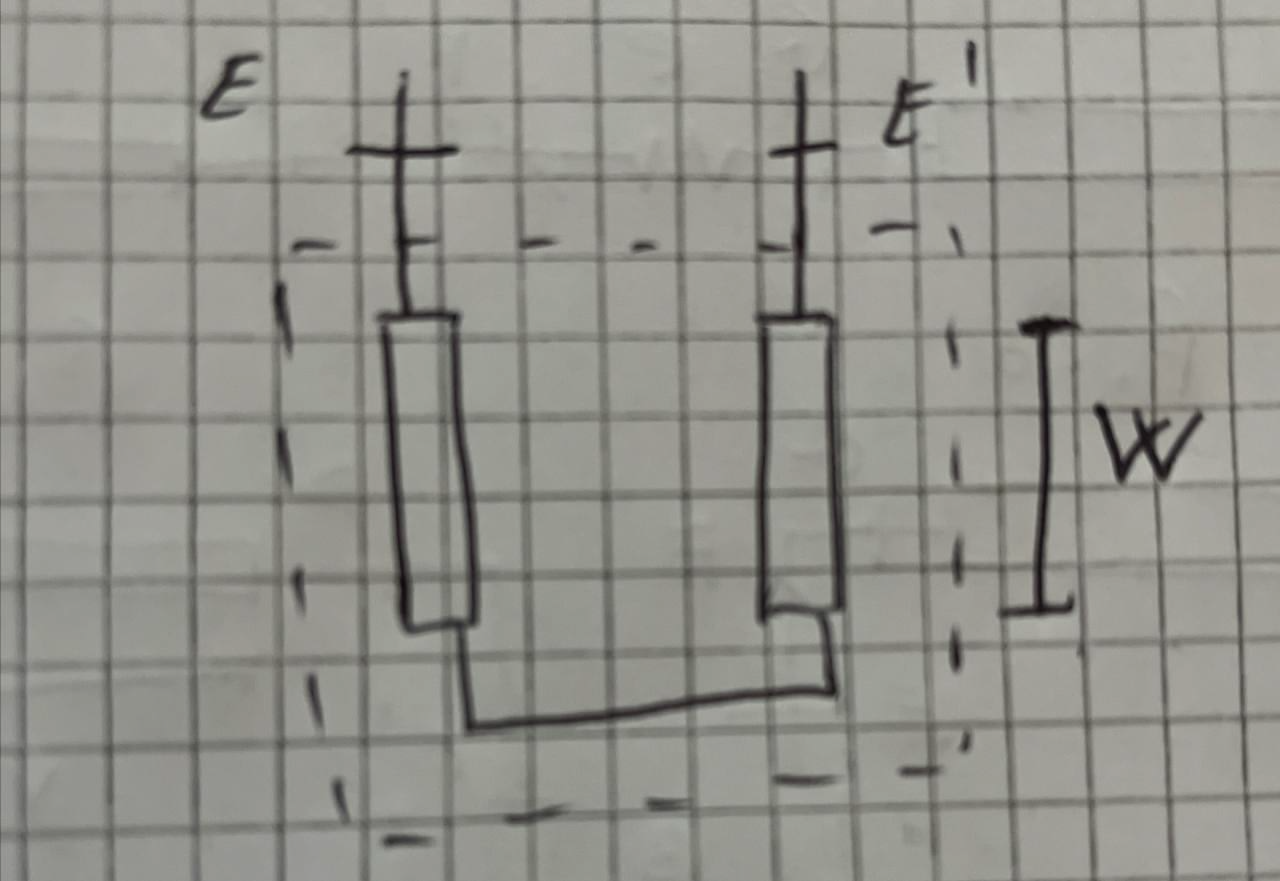 E
E'
W